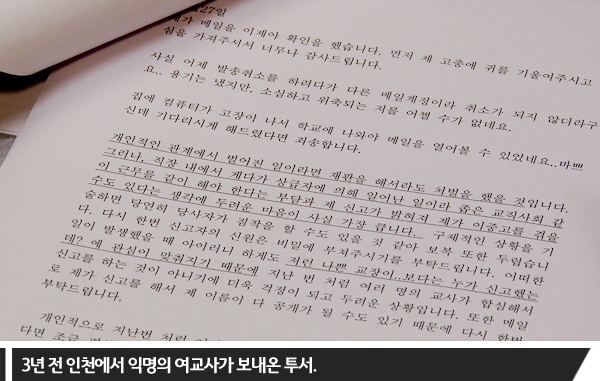 27일
제가 메일을 이제야 확인을 했습니다. 먼저 제 고충에 귀를 기울여주시고
심을 가져주셔서 너무나 감사드립니다.
사실 어제 발송취소를 하려다가 다른 메일계정이라 취소가 되지 않더라구
요.. 용기는 냈지만, 소심하고 위축되는 저를 어쩔 수가 없네요.
집에 컴퓨터가 고장이 나서 학교에 나와야 메일을 열어볼 수 있었네요..바쁘
신데 기다리시게 해드렸다면 죄송합니다.
개인적인 관계에서 벌어진 일이라면 재판을 해서라도 처벌을 했을 것입니다.
그러나, 직장 내에서 게다가 상급자에 의해 일어난 일이라 좁은 교직사회 같
이 근무를 같이 해야 한다는 부담과 제 신고가 밝혀져 제가 이중고를 겪을
수도 있다는 생각에 두려운 마음이 사실 가장 큽니다. 구체적인 상황을 기
술하면 당연히 당사자가 짐작을 할 수도 있을 것 같아 보복 또한 두렵습니
다. 다시 한번 신고자의 신원은 비밀에 부쳐주시기를 부탁드립니다. 어떠한
일이 발생했을 때 아이러니 하게도 저런 나쁜 교장이..보다는 누가 신고했는
데? 에 관심이 맞춰지기 때문에 지난 번 처럼 여러 명의 교사가 합심해서
신고를 하는 것이 아니기에 더욱 걱정이 되고 두려운 상황입니다. 또한 메일
로 제가 신고를 해서 제 이름이 다 공개가 될 수도 있기 때문에 다시 한번
부탁드립니다.
개인적으로 지난번 처럼
다면 조금
3년 전 인천에서 익명의 여교사가 보내온 투서.